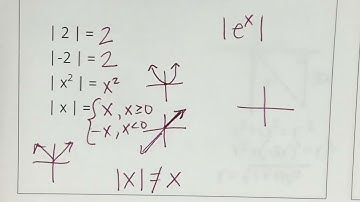 | 2 | = 2
| -2 | = 2
| x² | = x²
| x | = { x, x ≥ 0
-x, x < 0
|x| ≠ x
| eˣ |